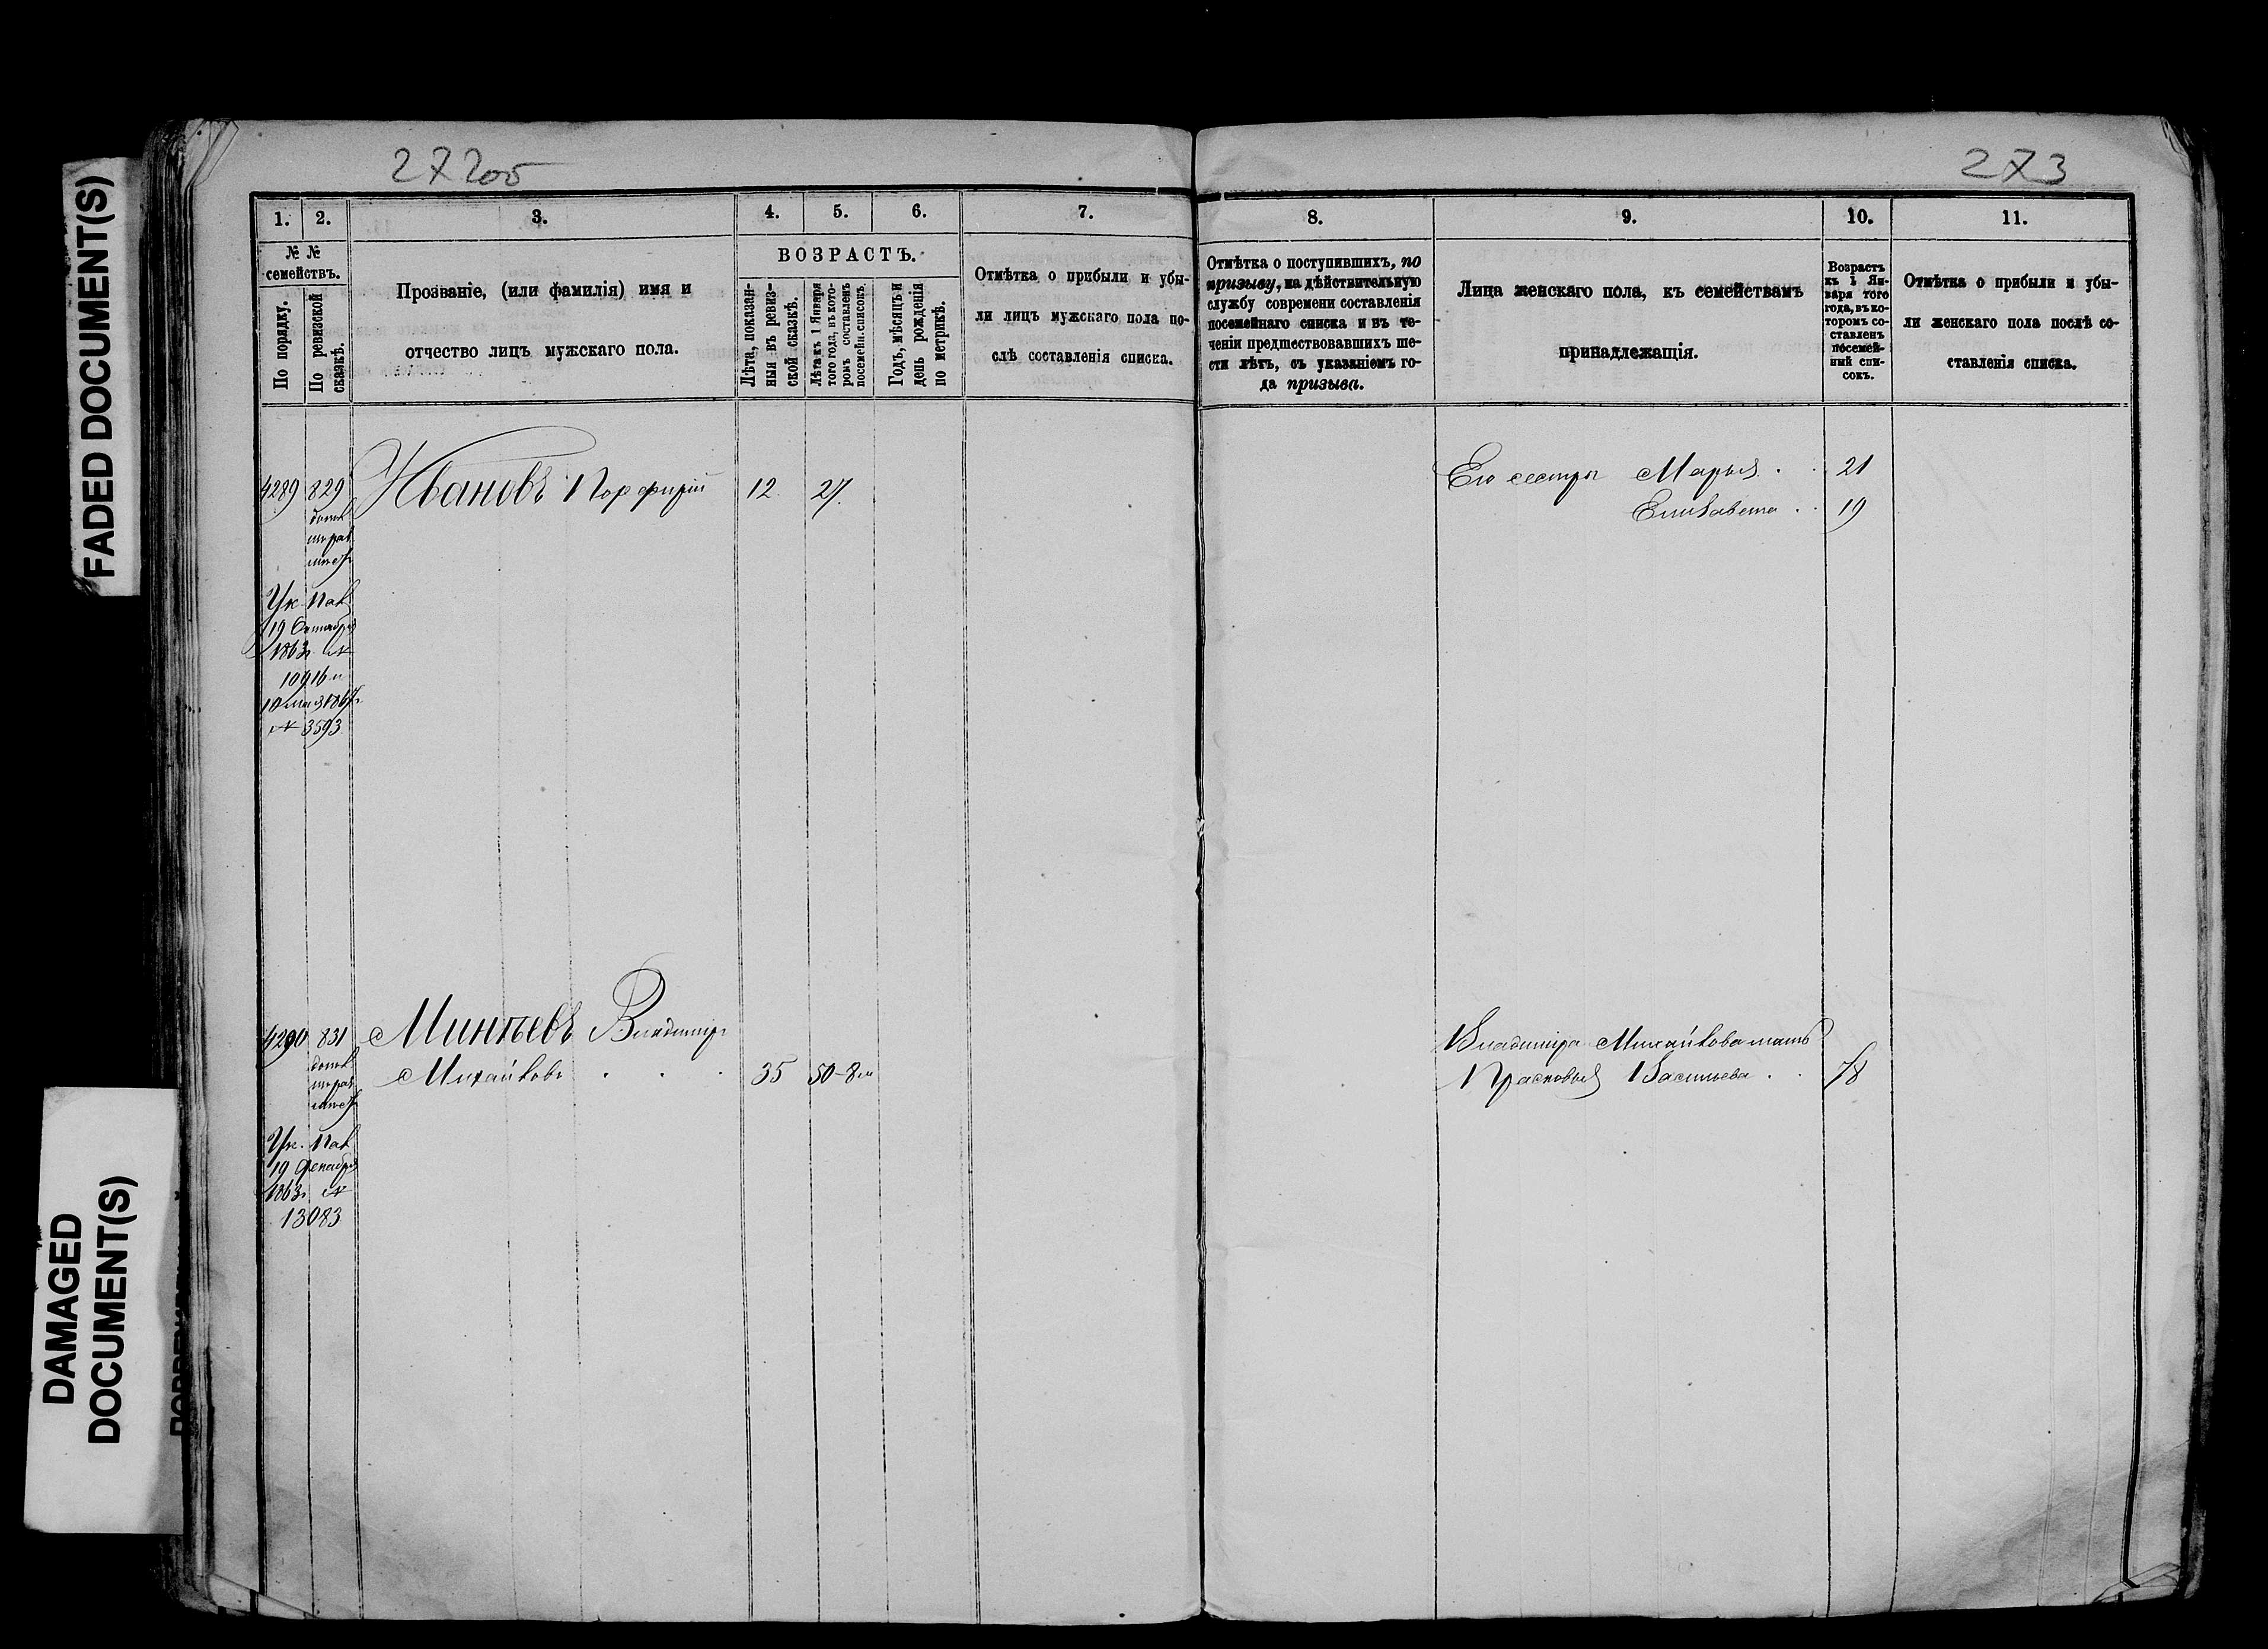 FADED DOCUMENT(S)
DAMAGED
DOCUMENT(S)
272об
273
1.
2.
3.
4.
5.
6.
7.
8.
9.
10.
11.
№ №
семействъ.
По порядку.
По ревизской
сказкѣ.
Прозваніе, (или фамилія) имя и
отчество лицъ мужскаго пола.
ВОЗРАСТЪ.
Лѣта, показан-
ныя въ ревиз-
ской сказкѣ.
Лѣта къ 1 Января
того года, въ кото-
ромъ составленъ
посемейн. списокъ.
Годъ, мѣсяцъ и
день рожденія
по метрикѣ.
Отмѣтка о прибыли и убы-
ли лицъ мужскаго пола по-
слѣ составленія списка.
Отмѣтка о поступившихъ, по
призыву, на дѣйствительную
службу современи составленія
посемейнаго списка и въ те-
ченіи предшествовавшихъ ше-
сти лѣтъ, съ указаніемъ го-
да призыва.
Лица женскаго пола, къ семействамъ
принадлежащія.
Возрастъ
къ 1 Ян-
варя того
года, въ ко-
торомъ со-
ставленъ
посемей-
ный спи-
сокъ.
Отмѣтка о прибыли и убы-
ли женскаго пола послѣ со-
ставленія списка.
4289 829 Ивановъ Порфирій 12 27.
Его сестры Марья . . 21
Елизавета . . 19
Ук. Пал
19 Октября
1863г. №
10916 и
10 мая 1867г.
№ 3593
4290 831 Минѣевъ Владиміръ
Михайловъ . . . 35 50-8м
Владиміра Михайлова мать
Прасковья Васильева . . 78
Ук. Пал
19 Декабря
1863г. №
13083